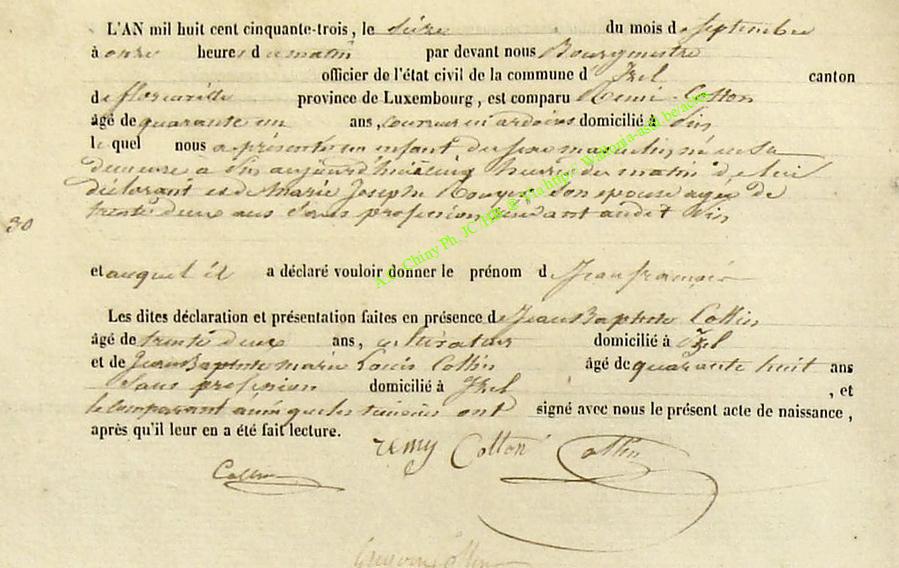 L'AN mil huit cent cinquante-trois, le seize du mois de septembre
à onze heures du matin par devant nous Bourgmestre
officier de l'état civil de la commune d'Izel canton
de florenville province de Luxembourg, est comparu Remi Cotton
âgé de quarante un ans, couvreur en ardoises domicilié à Pin
le quel nous a présenté un enfant du sexe masculin né en sa
demeure à Pin aujourd'hui à cinq heures du matin de lui
déclarant et de Marie Joseph son epouse agée de
trente deux ans sans profession audit Pin
30
et auquel il a déclaré vouloir donner le prénom de Jean françois
Les dites déclaration et présentation faites en présence de Jean Baptiste Collin
âgé de trente deux ans, cultivateur domicilié à Izel
et de Jean Baptiste Marie Louis Collin âgé de quarante huit ans
sans profession domicilié à Izel , et
le comparant ainsi que les témoins ont signé avec nous le présent acte de naissance,
après qu'il leur en a été fait lecture.
remy Cotton Collin
Collin